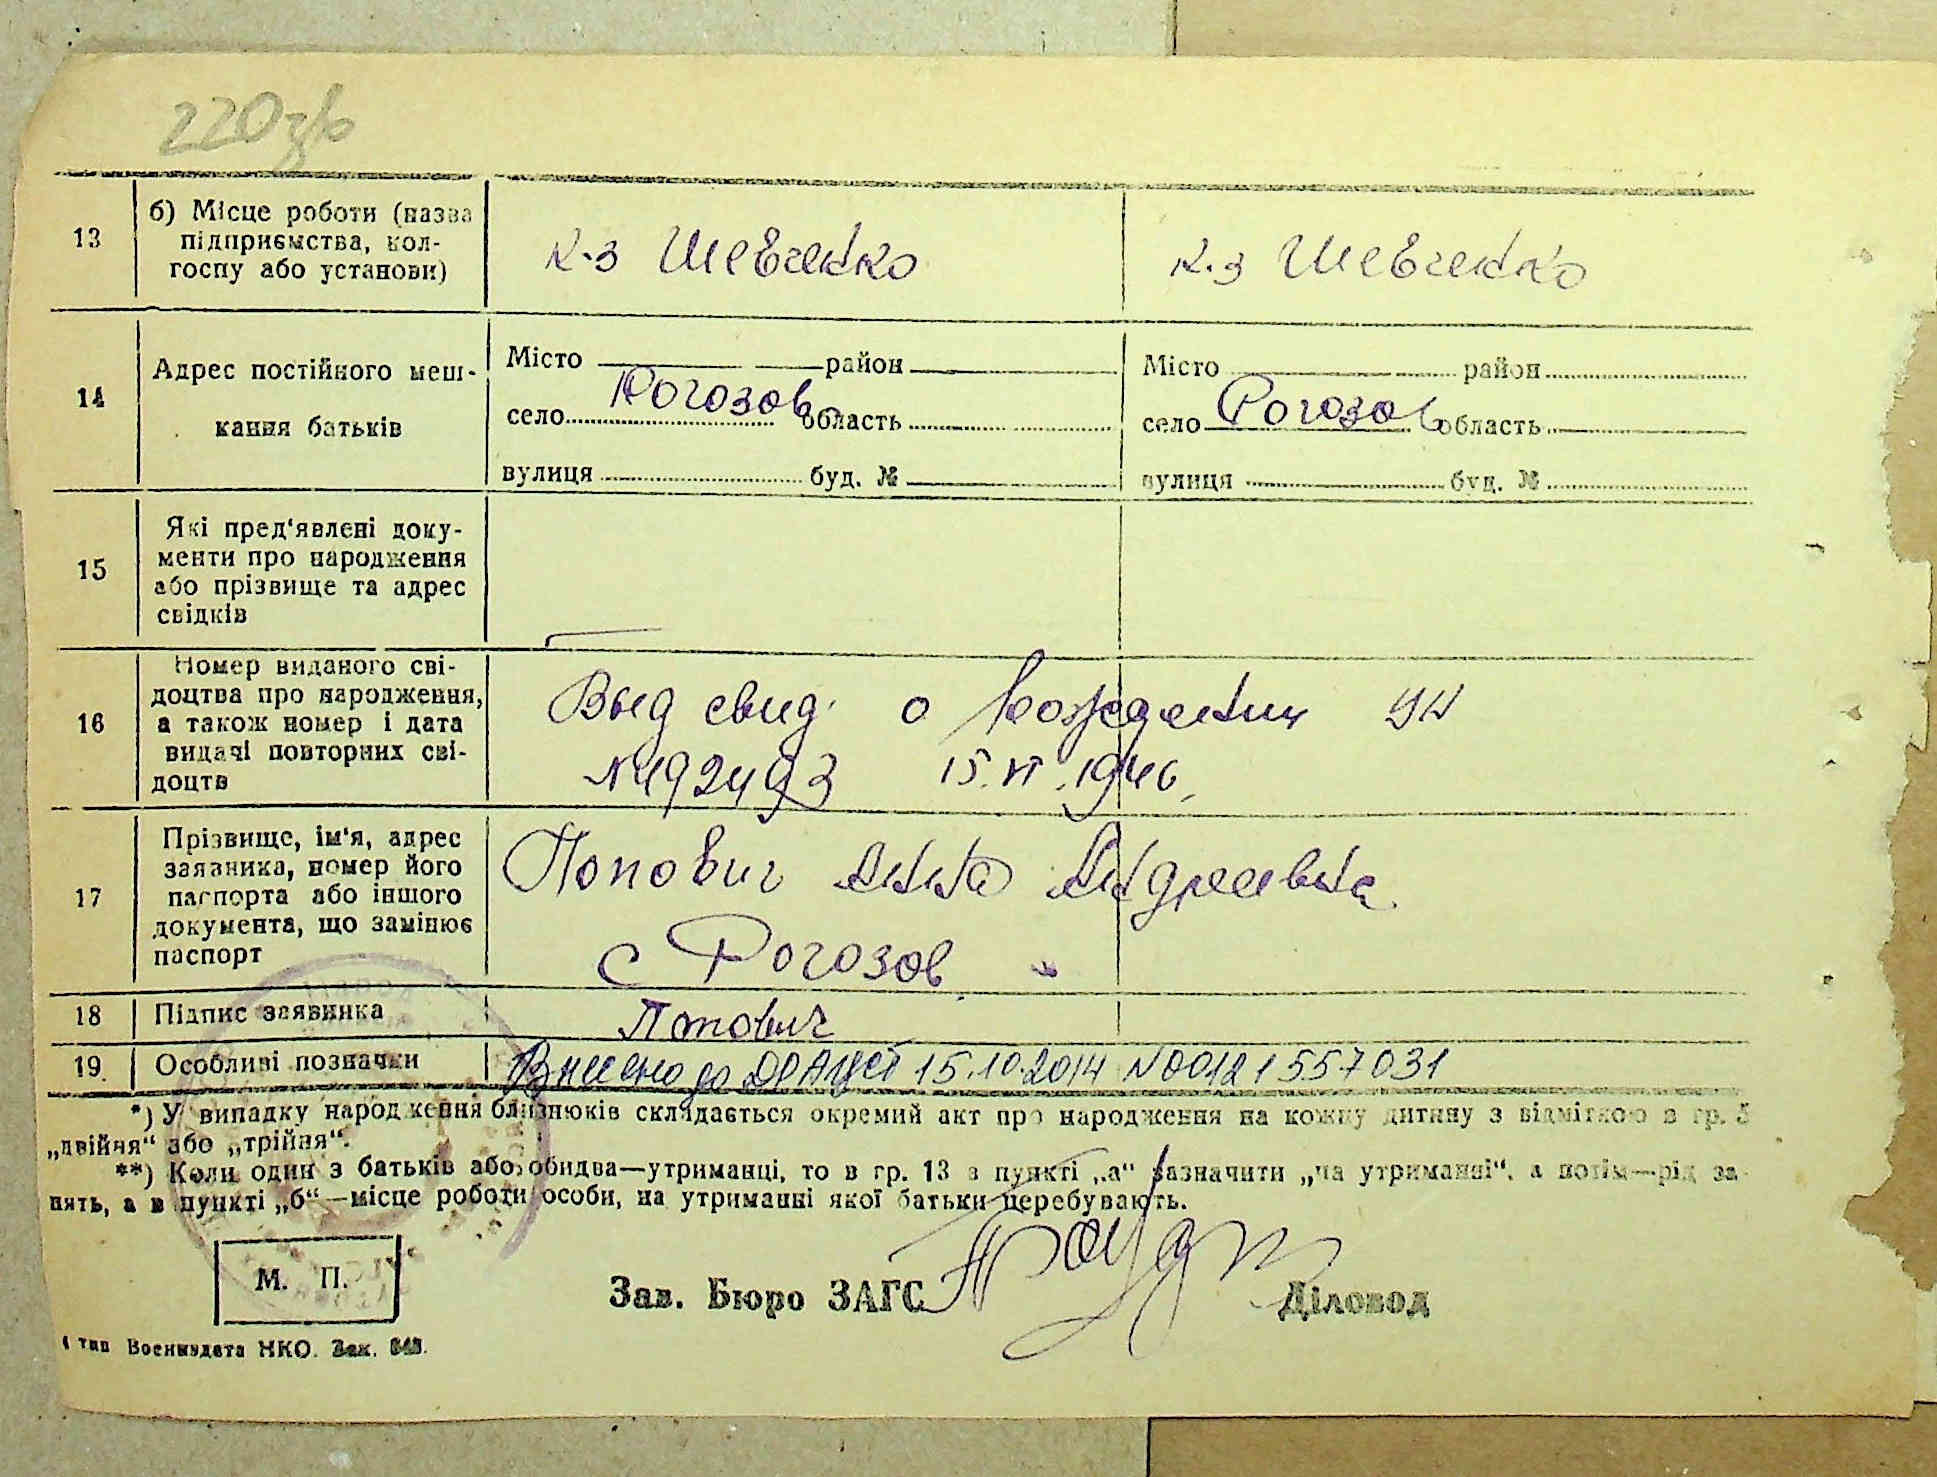 220зв
13 б) Місце роботи (назва підприємства, кол-госпу або установи) к-з Шевченко к.з Шевченко
14 Адрес постійного меш-кання батьків
Місто район Місто район
село Рогозов область село Рогозов область
вулиця буд. № вулиця буд. №
15 Які пред'явлені доку-
менти про народження
або прізвище та адрес
свідків
16 Номер виданого сві-
доцтва про народження,
а також номер і дата
видачі повторних сві-
доцтв
Выд свид. о рождении УН
№492493 15.VI.1946.
17 Прізвище, ім'я, адрес
заявника, номер його
паспорта або іншого
документа, що замінює
паспорт
Попович Анна Андреевна
с Рогозов
18 Підпис заявника Попович
19. Особливі позначки Внесено до ДРАЦСГ 15.10.2014 №00121557031
*) У випадку народження близнюків складається окремий акт про народження на кожну дитину з відміткою в гр. 5
„двійня“ або „трійня“.
**) Коли один з батьків або обидва—утриманці, то в гр. 13 в пункті „а“ зазначити „на утриманні“, а потім—рід за-
нять, а в пункті „б“—місце роботи особи, на утриманні якої батьки перебувають.
М. П.
Зав. Бюро ЗАГС Діловод
тип Воениздата НКО. Зак.